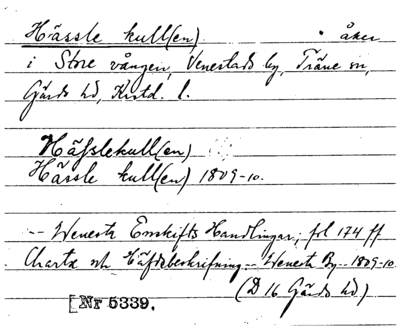 Hässle kull(en) . åker
i Store vången, Venestads by, Träne sn,
Gärds hd, Krstd. l.
Hässlekull(en)
Hässle kull(en) 1809-10.
-- Wenesta Enskifts Handlingar, fol 174 ff
Charta och Häfdebeskrifning -- Wenesta By -- 1809-10
(D 16 Gärds hd)
[Nr 5339.